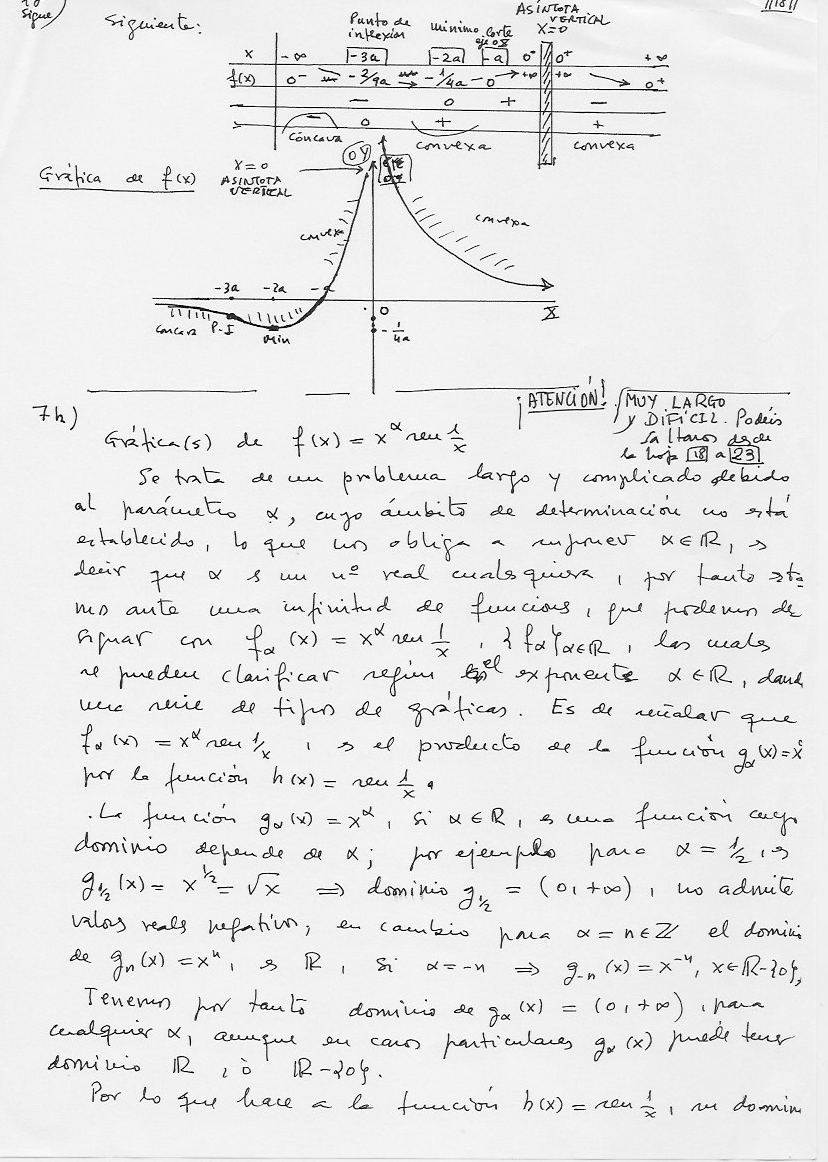 Sigue)
Siguiente:
Punto de inflexión
mínimo
Corte eje OX
ASÍNTOTA VERTICAL X=0
x -∞ -3a -2a -a 0⁻ 0⁺ +∞
f(x) 0⁻ → -2/9a → -1/4a 0 → +∞ +∞ → 0⁺
− 0 + −
− 0 + +
cóncava convexa convexa
Gráfica de f(x)
X=0
ASÍNTOTA VERTICAL
OY
convexa
convexa
-3a -2a -a
0
X
cóncava P-I
min
-1/4a
7h)
¡ATENCIÓN! MUY LARGO
y DIFÍCIL. Podéis
saltaros desde
la hoja 18 a 23
Gráfica(s) de f(x) = x^α sen 1/x
Se trata de un problema largo y complicado debido
al parámetro α, cuyo ámbito de determinación no está
establecido, lo que nos obliga a suponer α∈ℝ, es
decir que α es un nº real cualesquiera, por tanto esta-
mos ante una infinitud de funciones, que podemos de
signar con f_α(x) = x^α sen 1/x, {f_α}_α∈ℝ, las cuales
se pueden clasificar según el exponente α∈ℝ, dando
una serie de tipos de gráficas. Es de señalar que
f_α(x) = x^α sen 1/x, es el producto de la función g_α(x)=x^α
por la función h(x) = sen 1/x.
.La función g_α(x) = x^α, si α∈ℝ, es una función cuyo
dominio depende de α; por ejemplo para α = 1/2, es
g_1/2(x) = x^1/2 = √x ⇒ dominio g_1/2 = (0,+∞), no admite
valores reales negativos, en cambio para α = n∈ℤ el dominio
de g_n(x) = x^n, es ℝ, si α=-n ⇒ g_-n(x) = x^-n, x∈ℝ-{0},
Tenemos por tanto dominio de g_α(x) = (0,+∞), para
cualquier α, aunque en casos particulares g_α(x) puede tener
dominio ℝ, ó ℝ-{0}.
Por lo que hace a la función h(x) = sen 1/x, su dominio